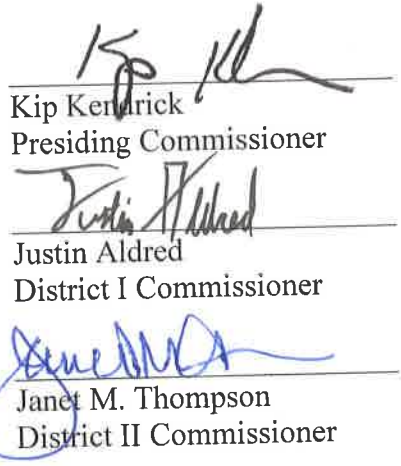 Kip Kendrick
Presiding Commissioner
Justin Aldred
Justin Aldred
District I Commissioner
Janet M. Thompson
District II Commissioner